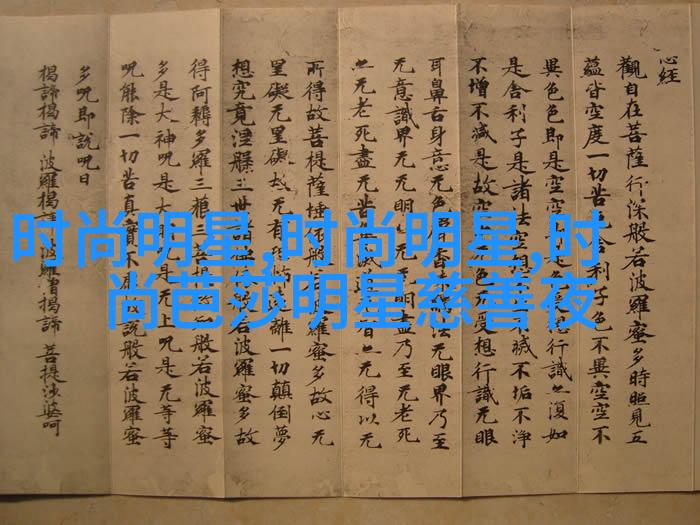 心经
觀自在菩薩行深般若波羅蜜多時照見五
蘊皆空度一切苦舍利子色不異空空不
異色色即是空空是色行識亦復如
是舍利子是諸法空相滅不垢不淨
不增不減是故空色无受想行識无眼
耳鼻舌身意无色香法无眼界乃至
无意識界无无明无明盡乃至无老死
亦无老死盡无苦集滅道亦无得以无
所得故菩提薩埵般若波羅蜜多故心无
罣礙无罣礙故无有恐怖離一切顛倒夢
想究竟涅槃三世般若波羅蜜多故
得阿耨多羅三藐三菩提般若波羅蜜
多是大神咒是大明咒是无上咒是无等等
咒能除一切苦真實不說般若波羅蜜
多咒即說咒曰
揭諦揭諦 波羅揭諦 波羅僧揭諦 菩提娑婆呵
时尚明星,时尚明星,时
尚芭莎明星慈善夜